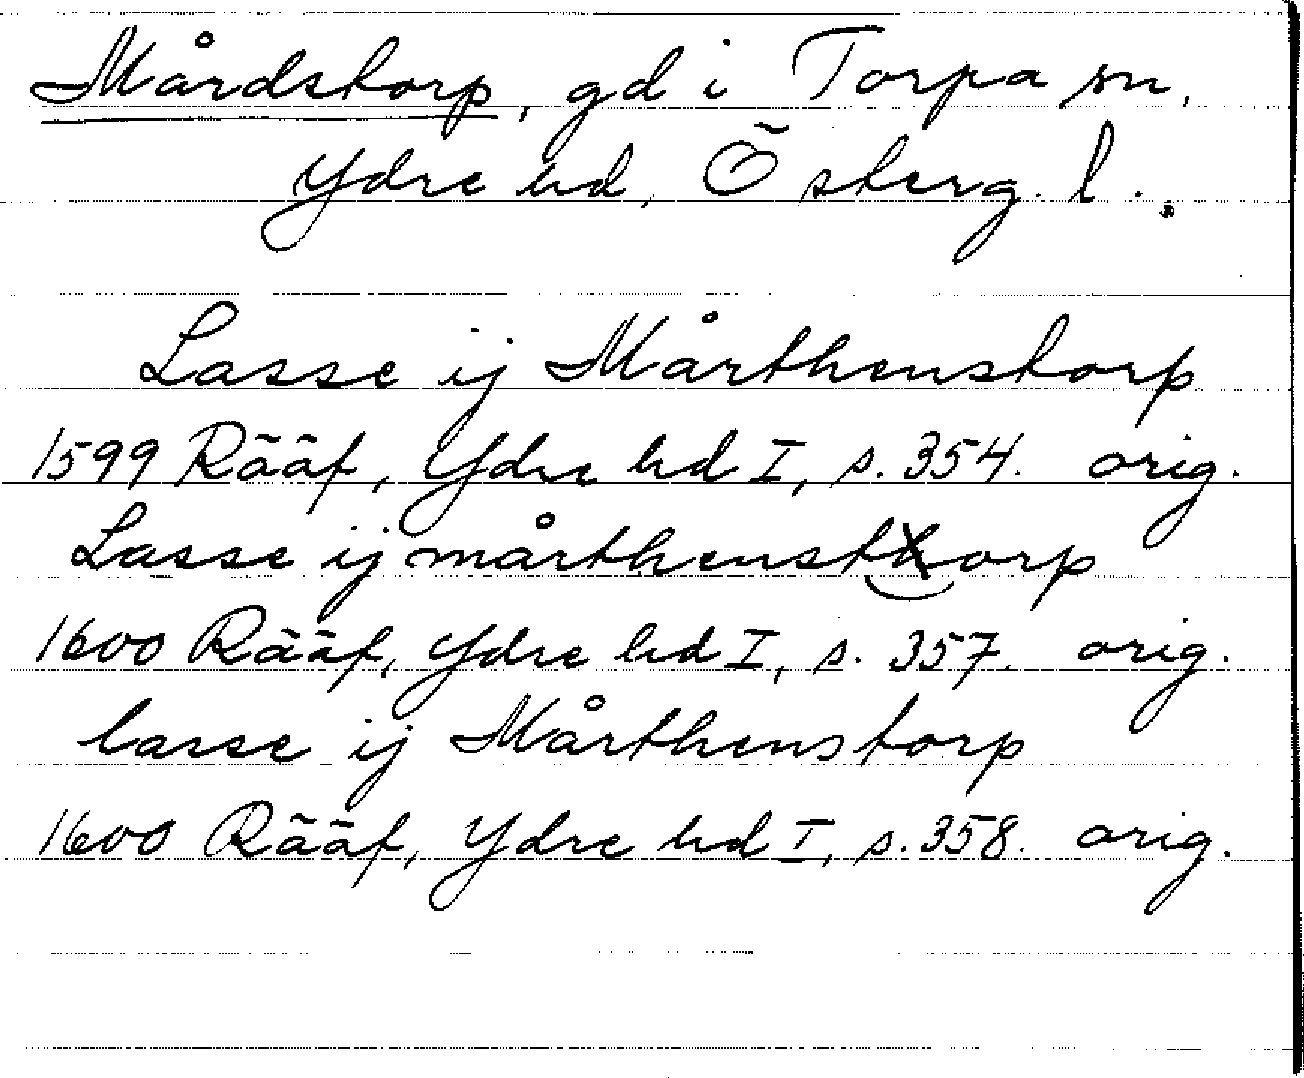 Mårdstorp, gd i Torpa sn,
Ydre hd, Österg. l.
Lasse ij Mårthenstorp
1599 Rääf, Ydre hd I, s. 354. orig.
Lasse ij mårthensthorp
1600 Rääf, Ydre hd I, s. 357. orig.
lasse ij Mårthenstorp
1600 Rääf, Ydre hd I, s. 358. orig.